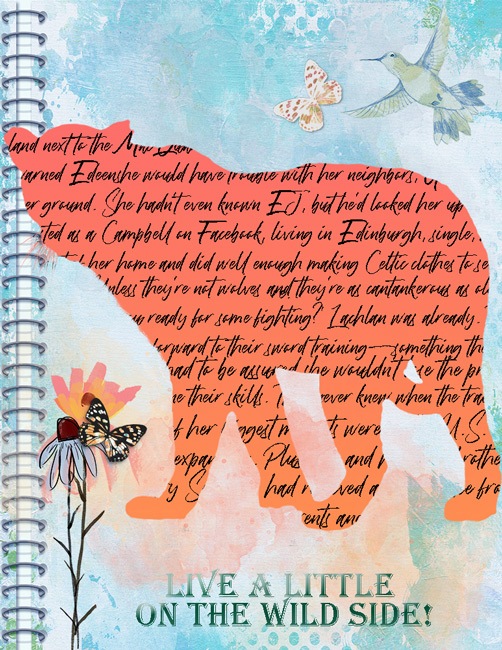 land next to the Mac
arned Edeenshe would have trouble with her neighbors,
er ground. She hadn't even known EJ, but he'd looked her up
ted as a Campbell on Facebook, living in Edinburgh, single,
her home and did well enough making Celtic clothes to se
Unless they're not wolves and they're as cantankerous as ol
ready for some fighting? Lachlan was already.
forward to their sword training—something th
had to be assured she wouldn't use the pr
e their skills. T ever knew when the tra
f her ggest m ts were U.S.
expan Plus and m rothe
y S had r ved a e fro
ents and
LIVE A LITTLE
ON THE WILD SIDE!